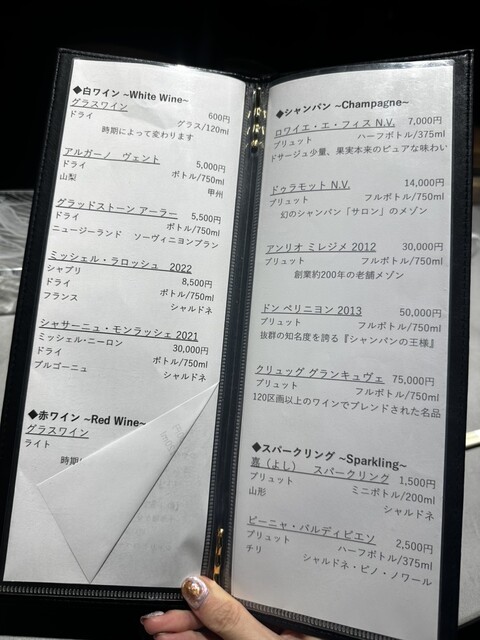 ◆白ワイン ~White Wine~
グラスワイン 600円
ドライ グラス/120ml
時期によって変わります
アルガーノ ヴェント 5,000円
ドライ ボトル/750ml
山梨 甲州
グラッドストーン アーラー 5,500円
ドライ ボトル/750ml
ニュージーランド ソーヴィニヨンブラン
ミッシェル・ラロッシュ 2022
シャブリ 8,500円
ドライ ボトル/750ml
フランス シャルドネ
シャサーニュ・モンラッシェ 2021
ミッシェル・ニーロン 30,000円
ドライ ボトル/750ml
ブルゴーニュ シャルドネ
◆赤ワイン ~Red Wine~
グラスワイン
ライト
時期
◆シャンパン ~Champagne~
ロワイエ・エ・フィス N.V. 7,000円
ブリュット ハーフボトル/375ml
ドサージュ少量、果実本来のピュアな味わい
ドゥラモット N.V. 14,000円
ブリュット フルボトル/750ml
幻のシャンパン「サロン」のメゾン
アンリオ ミレジメ 2012 30,000円
ブリュット フルボトル/750ml
創業約200年の老舗メゾン
ドン ペリニヨン 2013 50,000円
ブリュット フルボトル/750ml
抜群の知名度を誇る『シャンパンの王様』
クリュッグ グランキュヴェ 75,000円
ブリュット フルボトル/750ml
120区画以上のワインでブレンドされた名品
◆スパークリング ~Sparkling~
嘉（よし） スパークリング 1,500円
ブリュット ミニボトル/200ml
山形 シャルドネ
ビーニャ・バルディビエソ 2,500円
ブリュット ハーフボトル/375ml
チリ シャルドネ・ピノ・ノワール